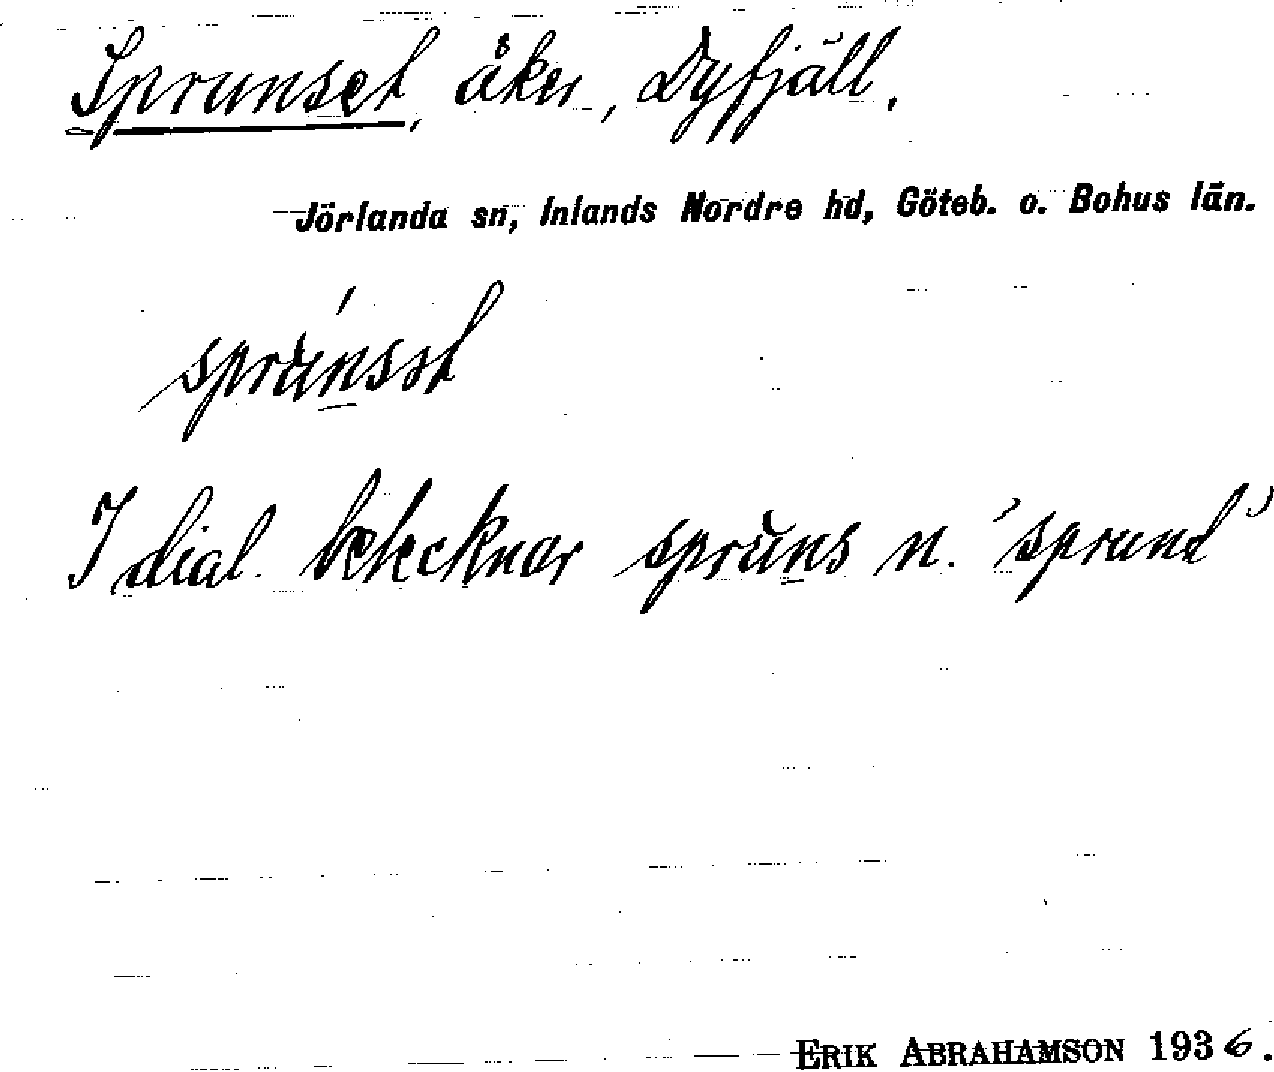 Sprunset, åker, Dyfjäll.
Jörlanda sn, Inlands Nordre hd, Göteb. o. Bohus län.
I dial. betecknar spruns n. 'sprund'
ERIK ABRAHAMSON 1936.